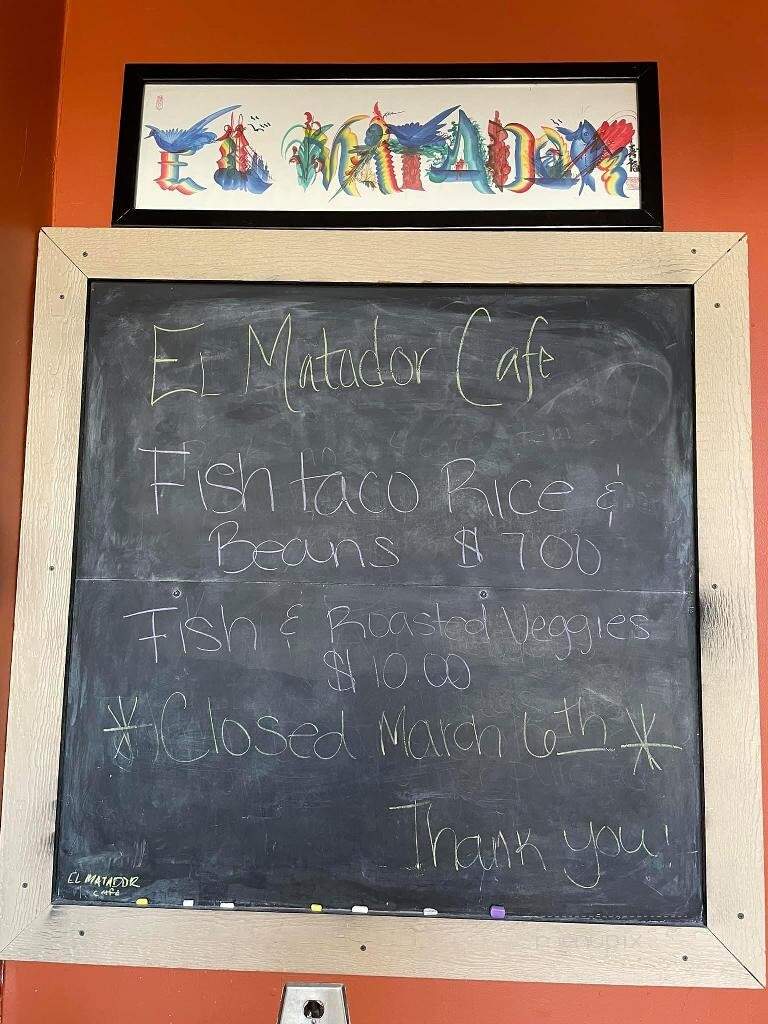 EL MATADOR
EL Matador Cafe
Fish taco Rice &
Beans $ 7.00
Fish & Roasted Veggies
$ 10.00
* Closed March 6th *
Thank you!
EL MATADOR
café
menupix